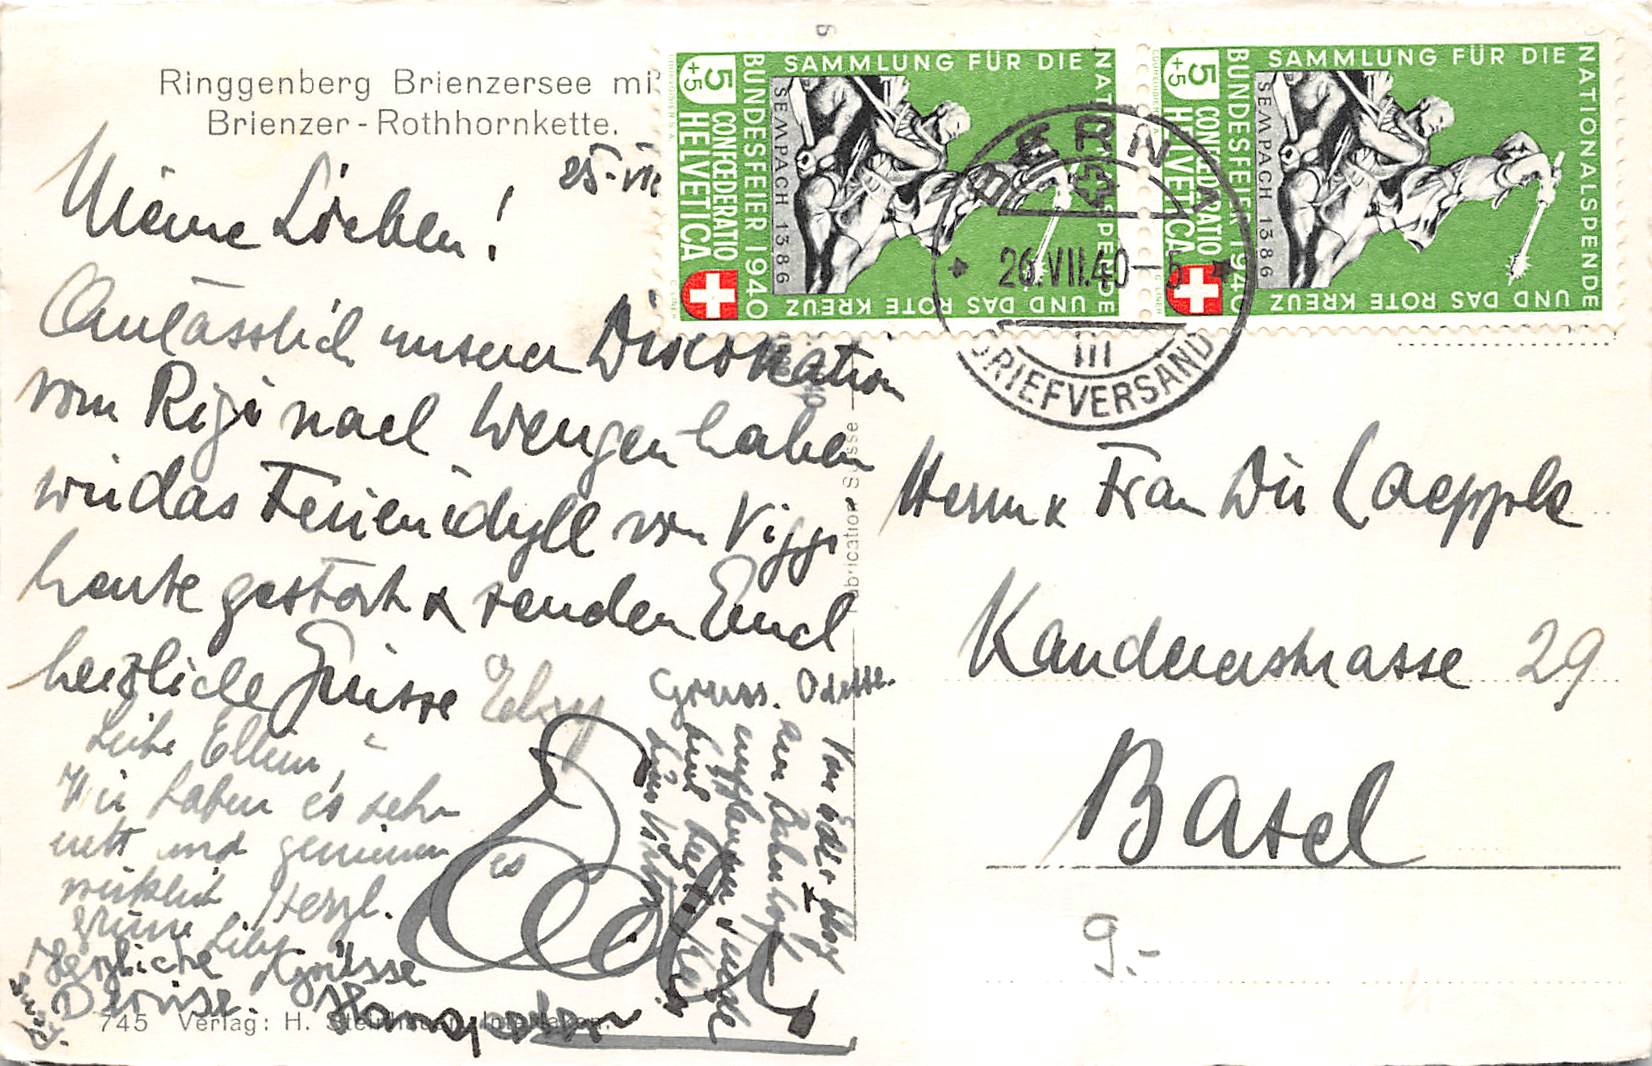 Ringgenberg Brienzersee mit
Brienzer-Rothhornkette.
25. VII
Meine Lieben!
Anlässlich unserer Dislokation
vom Rigi nach Wengen haben
wir das Ferienidyll von Viggi
heute gestört & senden Euch
herzliche Grüsse
Gruss. Odette.
Liebe Ellein,
Wir haben es sehr
nett und geniessen es
wirklich Herzl.
Grüsse Lily
Herzliche Grüsse
Denise. Hanspeter
Von
am Bahnhof
empfangen
745 Verlag: H. Steinhauer, Interlaken.
Fabrication Suisse
SAMMLUNG FÜR DIE NATIONALSPENDE UND DAS ROTE KREUZ
BUNDESFEIER 1940
CONFŒDERATIO
HELVETICA
5
+5
SEMPACH 1386
SAMMLUNG FÜR DIE NATIONALSPENDE UND DAS ROTE KREUZ
BUNDESFEIER 1940
CONFŒDERATIO
HELVETICA
5
+5
SEMPACH 1386
BERN 1
26.VII.40-5
III
BRIEFVERSAND
Herrn & Frau Dir Laepple
Kandererstrasse 29
Basel
9.-